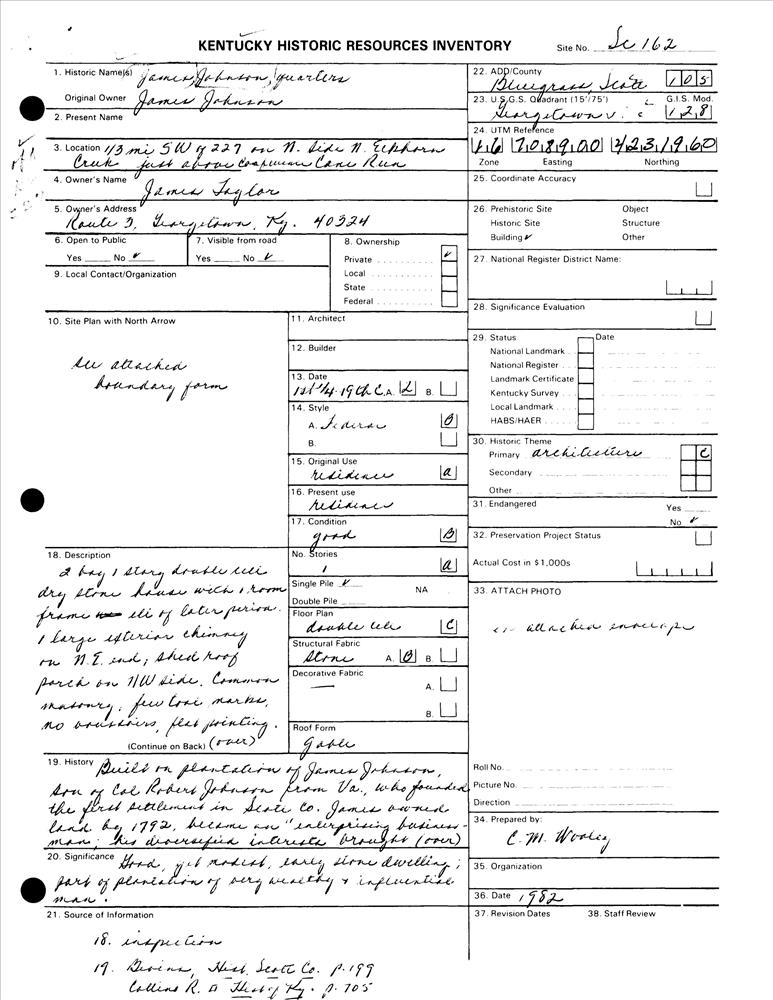 KENTUCKY HISTORIC RESOURCES INVENTORY
Site No. Sc 162
1. Historic Name(s) James Johnson, quarters
Original Owner James Johnson
2. Present Name
3. Location 1/3 mi SW of 227 on N. Side N. Elkhorn
Creek just above Cane Run
4. Owner's Name James Taylor
5. Owner's Address
Route 3, Georgetown, Ky. 40324
6. Open to Public
Yes No ✓
7. Visible from road
Yes No ✓
8. Ownership
Private ✓
Local
State
Federal
9. Local Contact/Organization
10. Site Plan with North Arrow
see attached
boundary form
11. Architect
12. Builder
13. Date
1st 1/4 19th C. A. 2 B.
14. Style
A. Federal 0
B.
15. Original Use
residence a
16. Present use
residence
17. Condition
good B
18. Description
2 bay 1 story double cell
dry stone house with 1 room
frame ell of later period.
1 large exterior chimney
on N.E. end; shed roof
porch on NW side. Common
masonry, few tool marks,
no voussoirs, flat pointing.
(Continue on Back) (over)
No. Stories
1 a
Single Pile ✓
NA
Double Pile
Floor Plan
double cell C
Structural Fabric
Stone A. 0 B.
Decorative Fabric
— A.
B.
Roof Form
Gable
19. History Built on plantation of James Johnson,
son of Col Robert Johnson from Va., who founded
the first settlement in Scott Co. James owned
land by 1792, became an "enterprising business-
man; his diversified interests brought (over)
20. Significance Good, yet modest, early stone dwelling;
part of plantation of very wealthy & influential
man.
21. Source of Information
18. inspection
19. Bevins, Hist. Scott Co. p. 199
Collins R. Hist of Ky. p. 705
22. ADD/County
Bluegrass, Scott 105
23. U.S.G.S. Quadrant (15'/75') G.I.S. Mod.
Georgetown 128
24. UTM Reference
16 708900 4231960
Zone Easting Northing
25. Coordinate Accuracy
26. Prehistoric Site Object
Historic Site Structure
Building ✓ Other
27. National Register District Name:
28. Significance Evaluation
29. Status Date
National Landmark
National Register
Landmark Certificate
Kentucky Survey
Local Landmark
HABS/HAER
30. Historic Theme
Primary architecture C
Secondary
Other
31. Endangered Yes
No ✓
32. Preservation Project Status
Actual Cost in $1,000s
33. ATTACH PHOTO
in attached envelope
Roll No.
Picture No.
Direction
34. Prepared by:
C. M. Wooley
35. Organization
36. Date 1982
37. Revision Dates 38. Staff Review